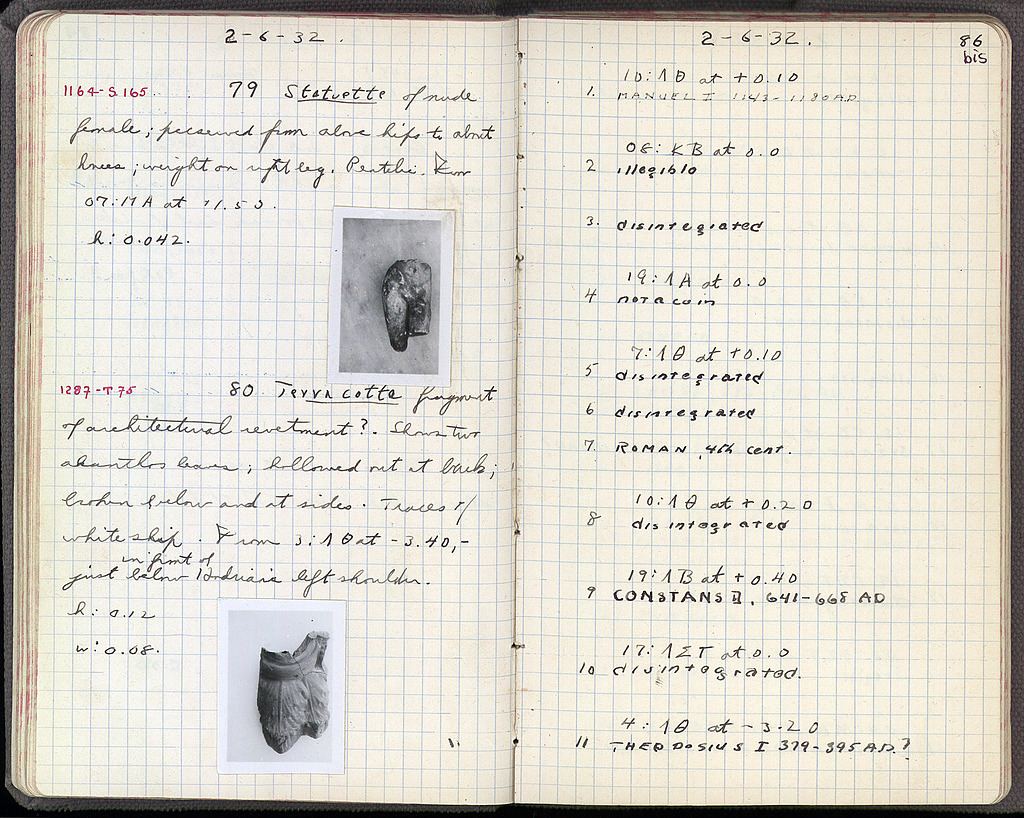 2-6-32.
1164-S 165. 79 Statuette of nude
female; preserved from above hips to about
knees; weight on right leg. Pentelic. From
at
h: 0.042.
1287-T 75 80 Terracotta fragment
of architectural revetment?. Shows two
akanthos leaves; hollowed out at back;
broken below and at sides. Traces of
white slip. From 3:ΛΘ at -3.40,-
in front of
just below Hadrian's left shoulder.
h: 0.12
w: 0.08.
2-6-32.
86
bis
10:ΛΘ at +0.10
1. MANUEL I 1143-1180 AD
08: KB at 0.0
2 illegible
3. disintegrated
19:ΛA at 0.0
4 not a coin
7:ΛΘ at +0.10
5 disintegrated
6 disintegrated
7. ROMAN, 4th cent.
10:ΛΘ at +0.20
8 disintegrated
19:ΛB at +0.40
9 CONSTANS II, 641-668 AD
17:ΛΣT at 0.0
10 disintegrated.
4:ΛΘ at -3.20
11 THEODOSIUS I 379-395 A.D.?